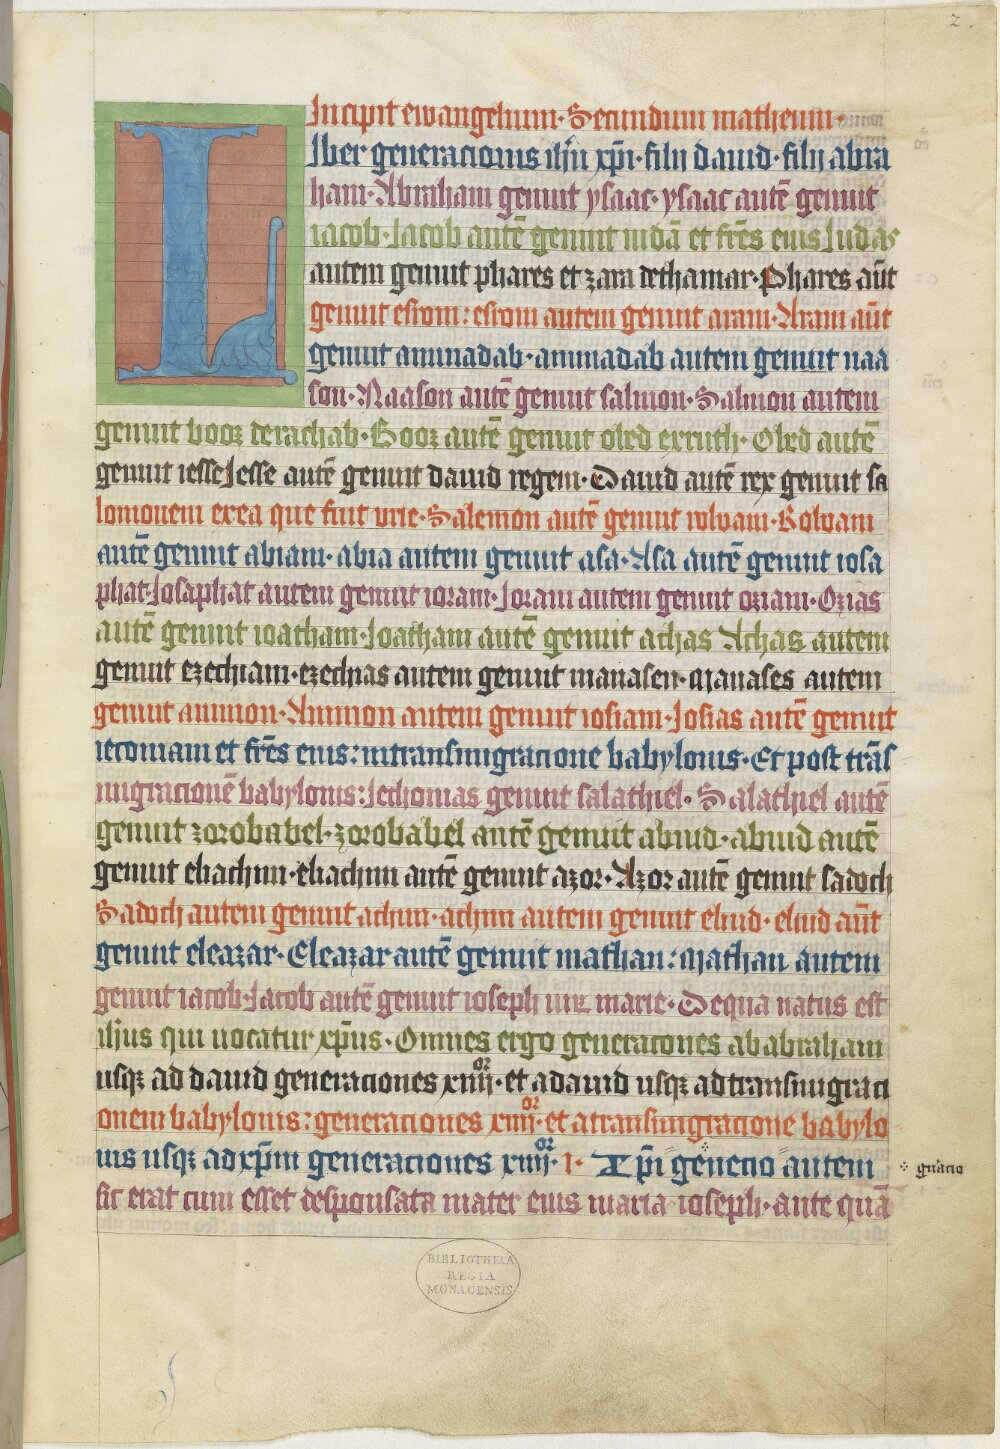 2.
Incipit ewangelium · Secundum matheum ·
LIber generacionis ihu xp̄i · filii dauid · filii abra
ham · Abraham genuit ysaac · ysaac autē genuit
iacob · Jacob autē genuit iudā et fr̄es eius Judas
autem genuit phares et zara dethamar · Phares aūt
genuit esrom : esrom autem genuit aram · Aram aūt
genuit aminadab · aminadab autem genuit naa
son · Naason autē genuit salmon · Salmon autem
genuit booz derachab · Booz autē genuit obed exruth · Obed autē
genuit iesse Jesse autē genuit dauid regem · Dauid autē rex genuit sa
lomonem exea que fuit urie · Salemon autē genuit roboam · Roboam
autē genuit abiam · abia autem genuit asa · Asa autē genuit iosa
phat · Josaphat autem genuit ioram · Joram autem genuit oziam · Ozias
autē genuit ioatham · Joatham autē genuit achas Achas autem
genuit ezechiam · ezechias autem genuit manasen · manases autem
genuit ammon · Ammon autem genuit iosiam · Josias autē genuit
ieconiam et fr̄es eius : intransmigracione babylonis · Et post trās
migracionē babylonis : Jechonias genuit salathiel · Salathiel autē
genuit zorobabel · zorobabel autē genuit abiud · abiud autē
genuit eliachim · eliachim autē genuit azor · Azor autē genuit sadoch
Sadoch autem genuit achim · achim autem genuit eliud · eliud aūt
genuit eleazar · Eleazar autē genuit mathan : mathan autem
genuit iacob · Jacob autē genuit ioseph uirū marie · Dequa natus est
ihus qui uocatur xp̄us · Omnes ergo generacones ab abraham
usqꝫ ad dauid generaciones xiiii^or · et adauid usqꝫ adtransmigraci
onem babylonis : generaciones xiiii^or · et atransmigracione babylo
nis usqꝫ adxp̄m generaciones xiiii^or · I · Xp̄i genecio autem
gn̄acio
sic erat cum esset desponsata mater eius maria ioseph · ante quā
BIBLIOTHECA
REGIA
MONACENSIS